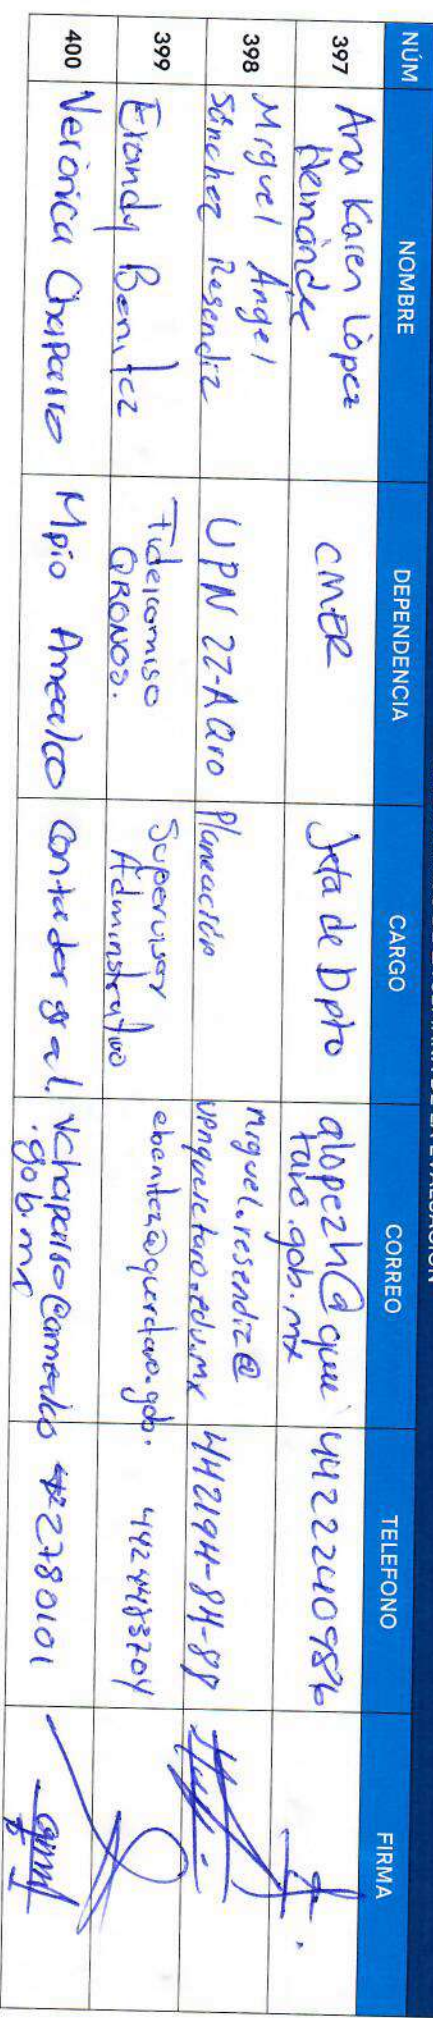 NÚM NOMBRE DEPENDENCIA CARGO CORREO TELEFONO FIRMA
397 Ana Karen López Hernández CMER Jefa de Dpto alopezh@que taro.gob.mx
398 Miguel Ángel Sánchez Resendiz UPN 22-A Qro Planeación miguel.resendiz@ upnqueretaro.edu.mx 442194-84-88
399 Erandy Benitez Fideicomiso QRONOS. Supervisor Administrativo ebenitez@queretaro.gob. 4424483704
400 Verónica Chaparro Mpio Amealco Contador gral. Vchaparro@amealco .gob.mx 2780101